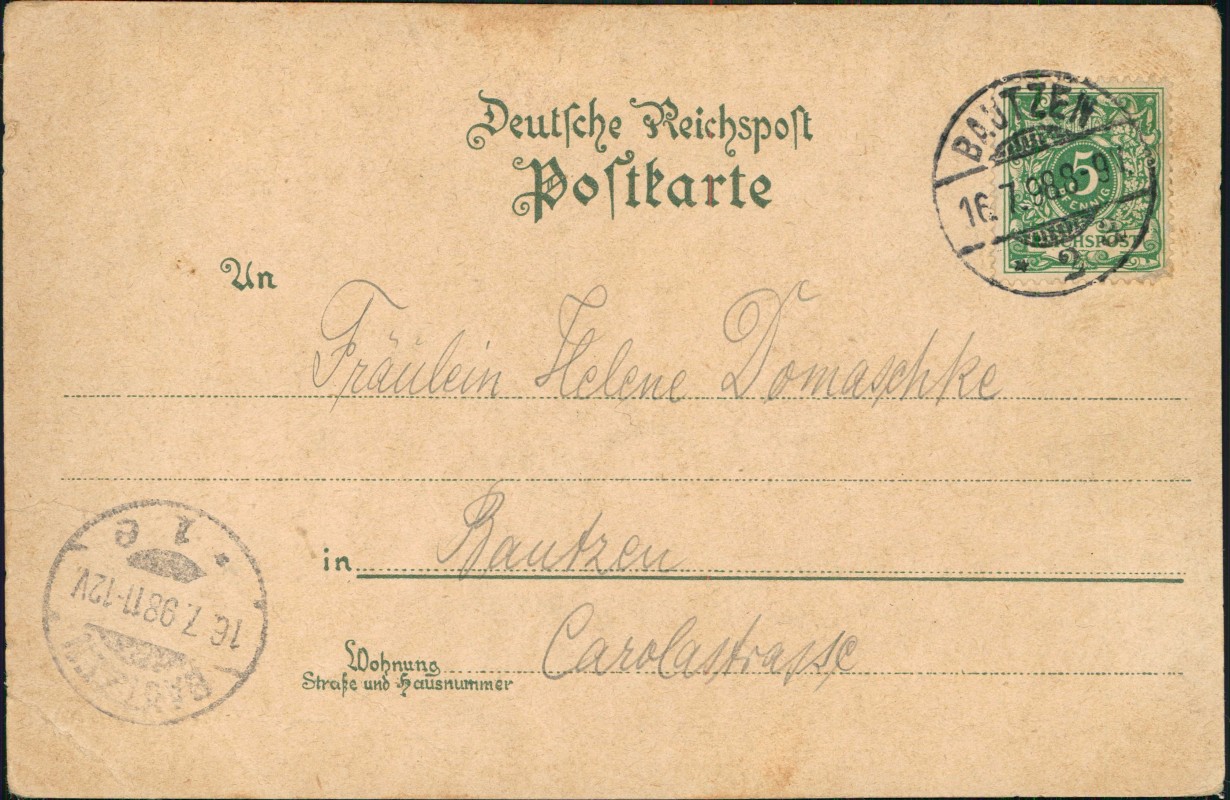 Deutsche Reichspost
Postkarte
BAUTZEN
16.7.98.8-9
* 2
5
PFENNIG
REICHSPOST
An
Fräulein Helene Domaschke
in Bautzen
Wohnung Carolastrasse
Straße und Hausnummer
BAUTZEN
16.7.98 11-12V.
* 1 e